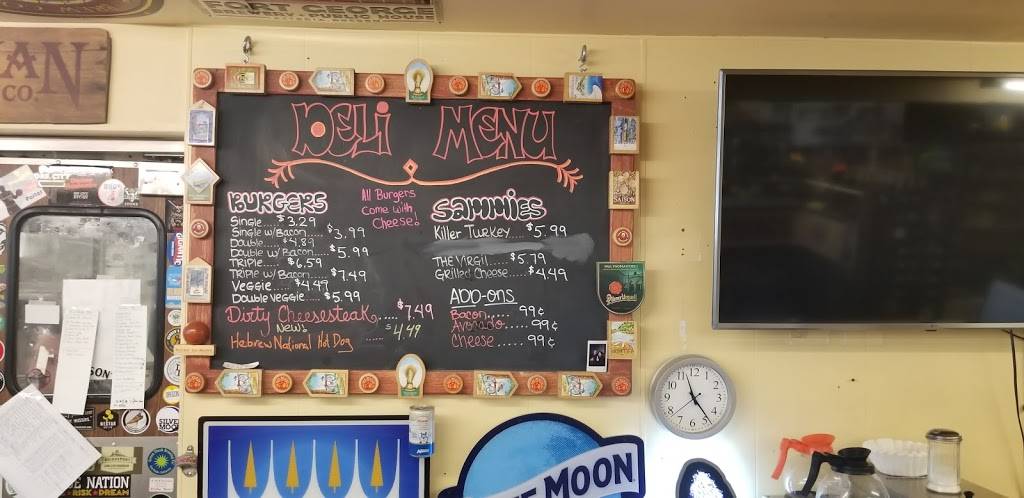 FORT GEORGE
BREWERY + PUBLIC HOUSE
AN
CO.
DELI MENU
BURGERS
Single..... $3.29
Single w/Bacon..... $3.99
Double..... $4.89
Double w/ Bacon..... $5.99
TRIPLE..... $6.59
TRIPLE w/ Bacon..... $7.49
Veggie..... $4.49
Double Veggie..... $5.99
All Burgers
come with
Cheese!
Dirty Cheesesteak..... $7.49
New!
Hebrew National Hot Dog ...... $4.49
SAMMIES
Killer Turkey.... $5.99
THE VIRGIL..... $5.79
Grilled Cheese.... $4.49
ADD-ONS
Bacon..... 99¢
Avocado..... 99¢
Cheese..... 99¢
SAISON
SON
SILVER
MOON
E NATION
RISK DREAM
E MOON
12
1
2
3
4
5
6
7
8
9
10
11